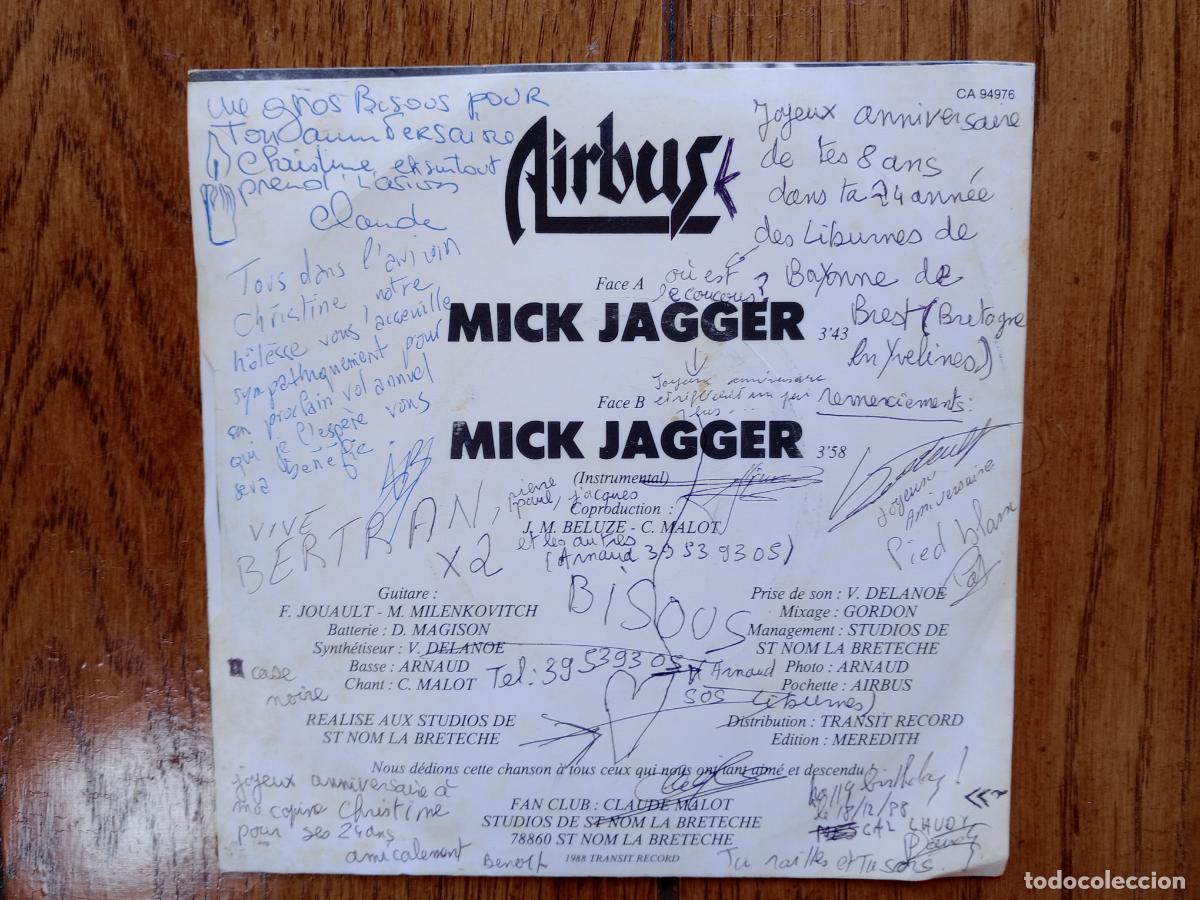 CA 94976
Une gros Bisous pour
Ton anniversaire
Christine, et surtout
prend l'avion
Claude
Airbus
Joyeux anniversaire
de tes 8 ans
dans ta 24 année
des Liburnes de
Bayonne de
Brest (Bretagne
en Yvelines)
remerciements:
Tous dans l'avion
Christine notre
hôtesse vous accueille
sympathiquement pour
son prochain vol annuel
qui je l'espère vous
sera bénéfic
Face A
où est
le coucous?
MICK JAGGER 3'43
Joyeux anniversaire
et réfléchit un peu
plus...
Face B
MICK JAGGER 3'58
(Instrumental)
Coproduction :
J. M. BELUZE - C. MALOT
VIVE
BERTRAN, pierre
paul, jacques
et les autres
x2
(Arnaud 39 53 93 05)
BISOUS
Joyeux
Anniversaire
Pied blanc
Pat
Guitare :
F. JOUAULT - M. MILENKOVITCH
Batterie : D. MAGISON
Synthétiseur : V. DELANOE
Basse : ARNAUD
Chant : C. MALOT
case
noire
REALISE AUX STUDIOS DE
ST NOM LA BRETECHE
Tel: 39 53 93 05
(Arnaud
SOS Liburnes)
Prise de son : V. DELANOE
Mixage : GORDON
Management : STUDIOS DE
ST NOM LA BRETECHE
Photo : ARNAUD
Pochette : AIRBUS
Distribution : TRANSIT RECORD
Edition : MEREDITH
Nous dédions cette chanson à tous ceux qui nous ont tant aimé et descendu !
FAN CLUB : CLAUDE MALOT
STUDIOS DE ST NOM LA BRETECHE
78860 ST NOM LA BRETECHE
1988 TRANSIT RECORD
joyeux anniversaire à
ma copine Christine
pour ses 24 ans
amicalement
Benoit
birthday!
le 18/12/88
Tu railles et Tu sors.
todocoleccion